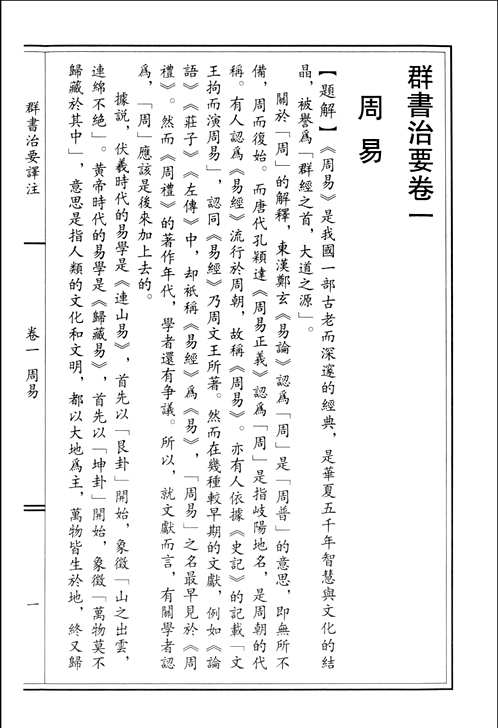 群書治要卷一
周易
【題解】《周易》是我國一部古老而深邃的經典，是華夏五千年智慧與文化的結
晶，被譽爲「群經之首，大道之源」。
關於「周」的解釋，東漢鄭玄《易論》認爲「周」是「周普」的意思，即無所不
備，周而復始。而唐代孔穎達《周易正義》認爲「周」是指岐陽地名，是周朝的代
稱。有人認爲《易經》流行於周朝，故稱《周易》。亦有人依據《史記》的記載「文
王拘而演周易」，認同《易經》乃周文王所著。然而在幾種較早期的文獻，例如《論
語》《莊子》《左傳》中，却衹稱《易經》爲《易》，「周易」之名最早見於《周
禮》。然而《周禮》的著作年代，學者還有争議。所以，就文獻而言，有關學者認
爲，「周」應該是後來加上去的。
據說，伏羲時代的易學是《連山易》，首先以「艮卦」開始，象徵「山之出雲，
連綿不絶」。黄帝時代的易學是《歸藏易》，首先以「坤卦」開始，象徵「萬物莫不
歸藏於其中」，意思是指人類的文化和文明，都以大地爲主，萬物皆生於地，終又歸
群書治要譯注
卷一 周易
一